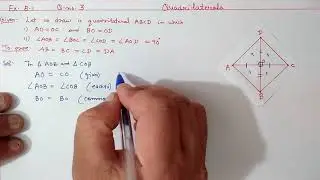 Ex: 8.1 Q.no: 3 Quadrilaterals
Given: Let us draw a quadrilateral ABCD in which
1) AO=OC and OB=OD
2) ∠AOB = ∠BOC = ∠COD = ∠AOD = 90°
To prove: AB = BC = CD = DA
Sol: In △AOB and △COB
AO = CO (given)
∠AOB = ∠COB (each 90
BO = BO (common
D
A
C
B